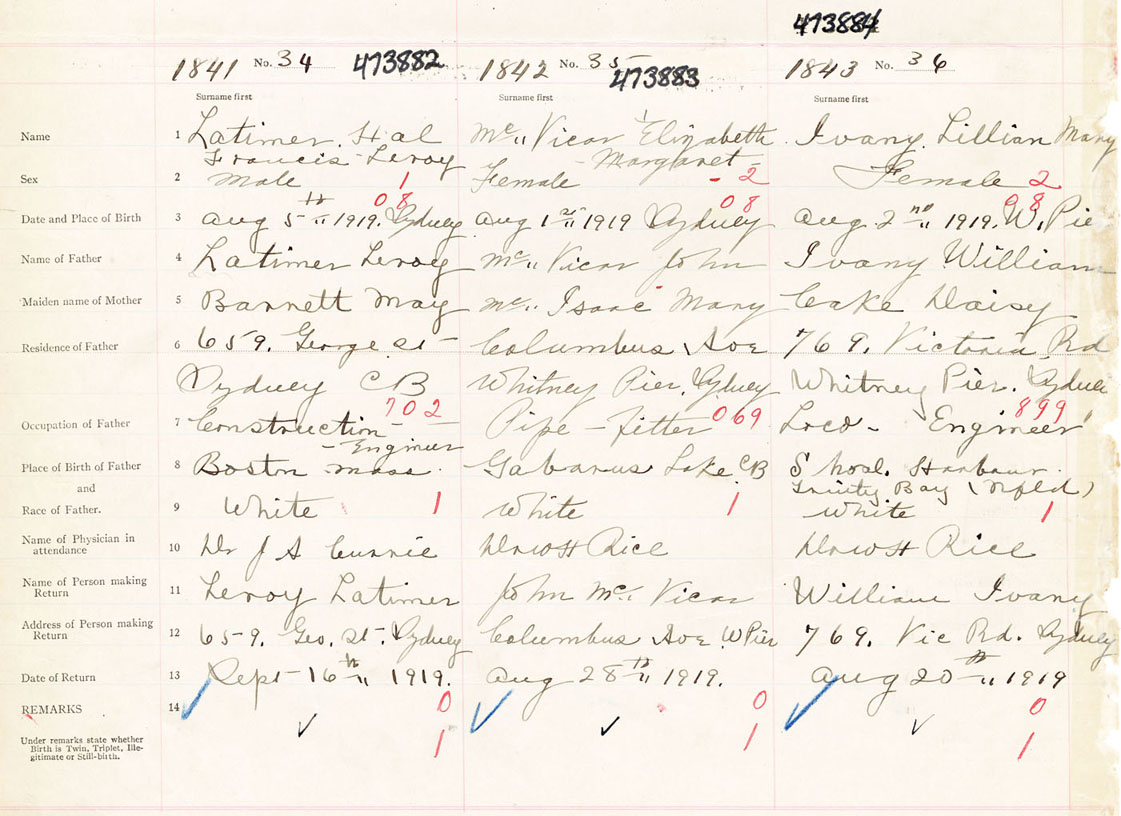 473884
1841 No. 34 473882 1842 No. 35 473883 1843 No. 36
Surname first Surname first Surname first
Name 1 Latimer, Hal Mc" Vicar Elizabeth Ivany Lillian Mary
Francis Leroy - Margaret -
Sex 2 Male 1 Female - 2 Female 2
08 08 08
Date and Place of Birth 3 Aug 5th" 1919. Sydney Aug 1st" 1919 Sydney Aug 2nd" 1919. W. Pie
Name of Father 4 Latimer Leroy Mc" Vicar John Ivany William
Maiden name of Mother 5 Barnett May Mc" Isaac Mary Cake Daisy
Residence of Father 6 659. George St - Columbus Ave 769. Victoria Rd
Sydney CB Whitney Pier, Sydney Whitney Pier. Sydne
702 069 899
Occupation of Father 7 Construction - Pipe - fitter Loco - Engineer
- Engineer
Place of Birth of Father 8 Boston Mass. Gabarus Lake CB Shoal. Harbour.
and Trinity Bay (Nfld)
Race of Father. 9 White 1 White 1 White 1
Name of Physician in
attendance 10 Dr J A Currie Dr W H Rice Dr W H Rice
Name of Person making
Return 11 Leroy Latimer John Mc" Vicar William Ivany
Address of Person making
Return 12 659. Geo. St. Sydney Columbus Ave W Pier 769. Vic Rd. Sydney
Date of Return 13 Sept 16th" 1919. Aug 28th" 1919. Aug 20th" 1919
REMARKS 14 0 0 0
Under remarks state whether
Birth is Twin, Triplet, Ille-
gitimate or Still-birth.
1 1 1